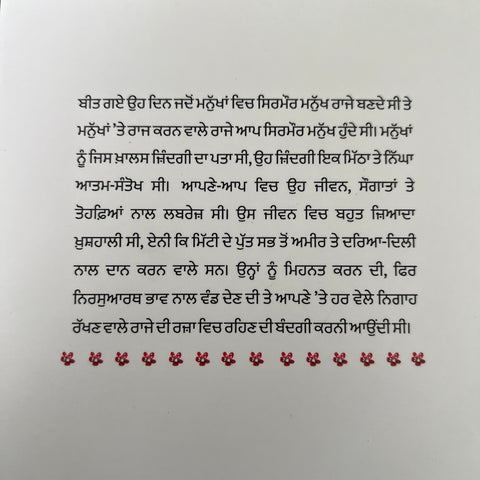 ਬੀਤ ਗਏ ਉਹ ਦਿਨ ਜਦੋਂ ਮਨੁੱਖਾਂ ਵਿਚ ਸਿਰਮੌਰ ਮਨੁੱਖ ਰਾਜੇ ਬਣਦੇ ਸੀ ਤੇ
ਮਨੁੱਖਾਂ ’ਤੇ ਰਾਜ ਕਰਨ ਵਾਲੇ ਰਾਜੇ ਆਪ ਸਿਰਮੌਰ ਮਨੁੱਖ ਹੁੰਦੇ ਸੀ। ਮਨੁੱਖਾਂ
ਨੂੰ ਜਿਸ ਖ਼ਾਲਸ ਜ਼ਿੰਦਗੀ ਦਾ ਪਤਾ ਸੀ, ਉਹ ਜ਼ਿੰਦਗੀ ਇਕ ਮਿੱਠਾ ਤੇ ਨਿੱਘਾ
ਆਤਮ-ਸੰਤੋਖ ਸੀ। ਆਪਣੇ-ਆਪ ਵਿਚ ਉਹ ਜੀਵਨ, ਸੌਗਾਤਾਂ ਤੇ
ਤੋਹਫ਼ਿਆਂ ਨਾਲ ਲਬਰੇਜ਼ ਸੀ। ਉਸ ਜੀਵਨ ਵਿਚ ਬਹੁਤ ਜ਼ਿਆਦਾ
ਖ਼ੁਸ਼ਹਾਲੀ ਸੀ, ਏਨੀ ਕਿ ਮਿੱਟੀ ਦੇ ਪੁੱਤ ਸਭ ਤੋਂ ਅਮੀਰ ਤੇ ਦਰਿਆ-ਦਿਲੀ
ਨਾਲ ਦਾਨ ਕਰਨ ਵਾਲੇ ਸਨ। ਉਨ੍ਹਾਂ ਨੂੰ ਮਿਹਨਤ ਕਰਨ ਦੀ, ਫਿਰ
ਨਿਰਸੁਆਰਥ ਭਾਵ ਨਾਲ ਵੰਡ ਦੇਣ ਦੀ ਤੇ ਆਪਣੇ ’ਤੇ ਹਰ ਵੇਲੇ ਨਿਗਾਹ
ਰੱਖਣ ਵਾਲੇ ਰਾਜੇ ਦੀ ਰਜ਼ਾ ਵਿਚ ਰਹਿਣ ਦੀ ਬੰਦਗੀ ਕਰਨੀ ਆਉਂਦੀ ਸੀ।